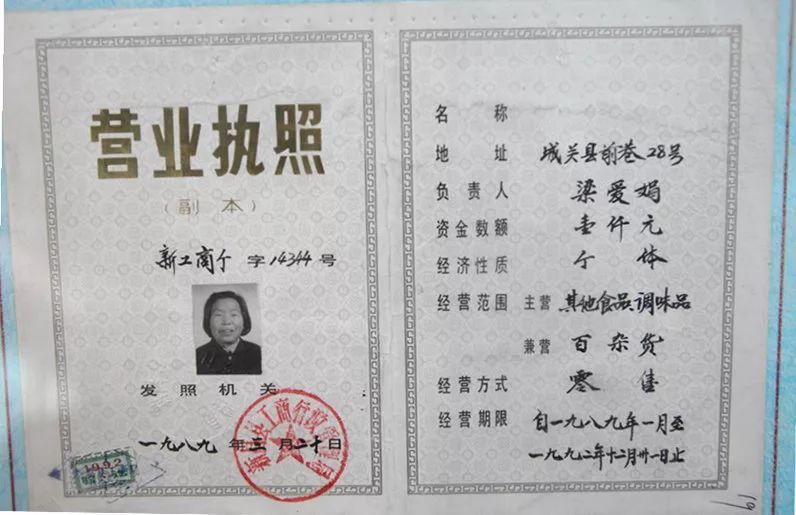 营业执照
（副本）
新工商个 字14344号
发照机关
一九八九年三月二十日
1992
名称
地址 城关县前巷28号
负责人 梁爱娟
资金数额 壹仟元
经济性质 个体
经营范围 主营 其他食品、调味品
兼营 百杂货
经营方式 零售
经营期限 自一九八九年一月至
一九九二年十二月卅一日止